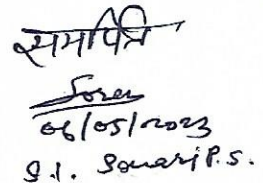 समर्पित
Soren
06/05/2023
S.I. Sonari P.S.